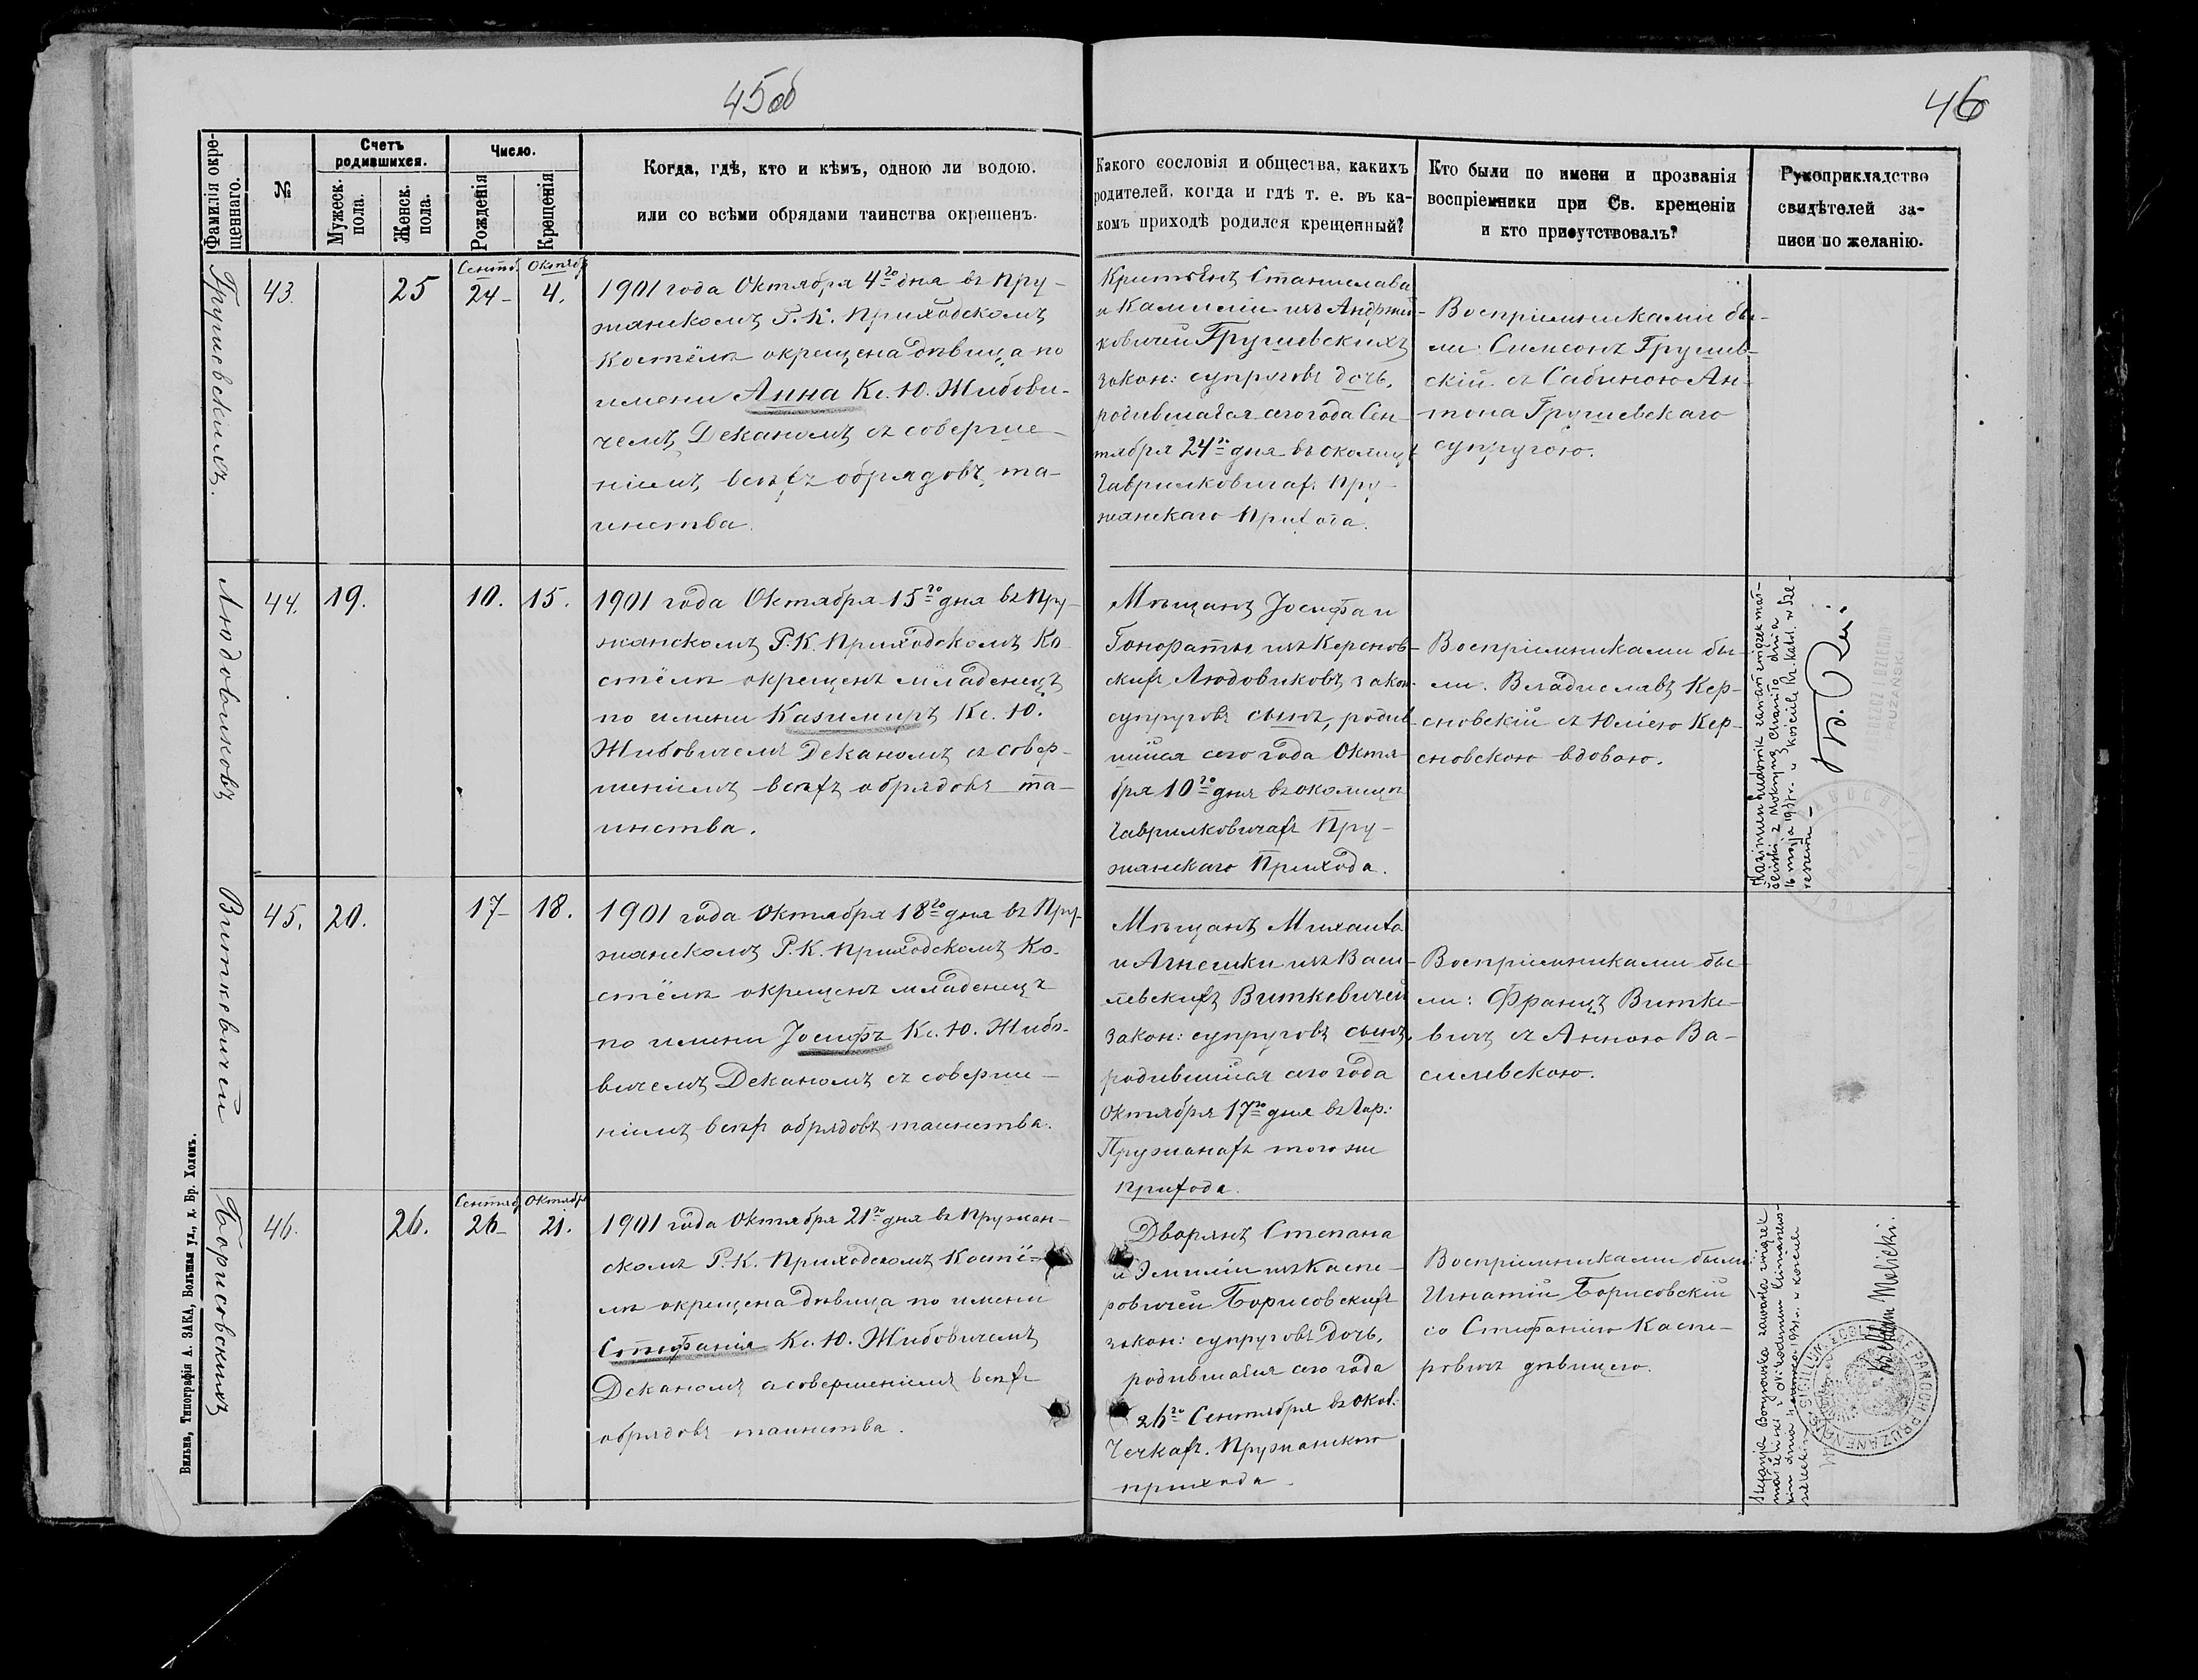 45об
46
Фамилія окрещеннаго.
№
Счетъ родившихся.
Мужеск. пола.
Женск. пола.
Число.
Рожденія
Крещенія
Когда, гдѣ, кто и кѣмъ, одною ли водою.
или со всѣми обрядами таинства окрещенъ.
Какого сословія и общества, какихъ
родителей, когда и гдѣ т. е. въ ка-
комъ приходѣ родился крещенный?
Кто были по имени и прозванія
воспріемники при Св. крещеніи
и кто присутствовалъ?
Рукоприкладство
свидѣтелей за-
писи по желанію.
43.
25
Сентяб.
24-
Октябр
4.
1901 года Октября 4го дня въ Пру-
жанскомъ Р. К. Приходскомъ
Костёлѣ окрещена дѣвица по
имени Анна Кс. Ю. Жибови-
чемъ Деканомъ съ соверше-
ніемъ всѣхъ обрядовъ та-
инства.
Крестьянъ Станислава
и Камиліи изъ Андрей-
ковичей Грушевскихъ
закон: супруговъ дочь,
родившаяся сего года Сен-
тября 24го дня въ околицѣ
Гаврилковичах. Пру-
жанскаго Прихода.
Воспріемниками бы-
ли: Симеонъ Грушев-
скій съ Сабиною Ан-
тона Грушевскаго
супругою.
Людовиковъ
44.
19.
10.
15.
1901 года Октября 15го дня въ Пру-
жанскомъ Р. К. Приходскомъ Ко-
стёлѣ окрещенъ младенецъ
по имени Казимиръ Кс. Ю.
Жибовичемъ Деканомъ съ совер-
шеніемъ всѣхъ обрядовъ та-
инства.
Мѣщанъ Іосифа и
Гонораты изъ Керснов-
скихъ Людовиковъ закон:
супруговъ сынъ, родив-
шійся сего года Октя-
бря 10го дня въ околицѣ
Гаврилковичахъ Пру-
жанскаго Прихода.
Воспріемниками бы-
ли: Владиславъ Кер-
сновскій съ Юліею Кер-
сновскою вдовою.
Виткевичей
45.
20.
17-
18.
1901 года Октября 18го дня въ Пру-
жанскомъ Р. К. Приходскомъ Ко-
стёлѣ окрещенъ младенецъ
по имени Іосифъ Кс. Ю. Жибо-
вичемъ Деканомъ съ соверше-
ніемъ всѣхъ обрядовъ таинства.
Мѣщанъ Михаила
и Агнешки изъ Васи-
левскихъ Виткевичей
закон: супруговъ сынъ,
родившійся сего года
Октября 17го дня въ гор:
Пружанахъ того же
прихода.
Воспріемниками бы-
ли: Францъ Витке-
вичъ съ Анною Ва-
силевскою.
Борисовскихъ
46.
26.
Сентяб
26-
Октябр
21.
1901 года Октября 21го дня въ Пружан-
скомъ Р. К. Приходскомъ Костё-
лѣ окрещена дѣвица по имени
Стефанія Кс. Ю. Жибовичемъ
Деканомъ съ совершеніемъ всѣхъ
обрядовъ таинства.
Дворянъ Степана
и Эмиліи изъ Каспе-
ровичей Борисовскихъ
закон: супруговъ дочь,
родившаяся сего года
26го Сентября въ окол.
Чечках. Пружанскаго
прихода.
Воспріемниками были
Игнатій Борисовскій
со Стефаніею Каспе-
ровичъ дѣвицею.
Adam Molicki.
Вильна, Типографія А. ЗАКА, Большая ул., д. Бр. Холемъ.